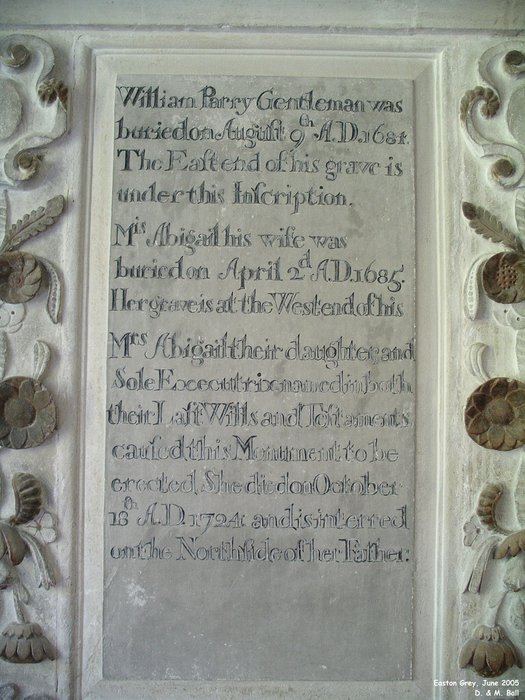 William Parry Gentleman was
buried on Auguſt 9th A.D. 1681.
The Eaſt end of his grave is
under this Inſcription.
Mis Abigail his wife was
buried on April 2d A.D. 1685.
Her grave is at the West end of his
Mrs Abigail their daughter, and
Sole Excecutrix named in both
their Laſt Wills and Teſtaments
cauſed this Monument to be
erected. She died on October
18th A.D. 1724: and is interred
on the North ſide of her Father:
Easton Grey, June 2005
D. & M. Ball